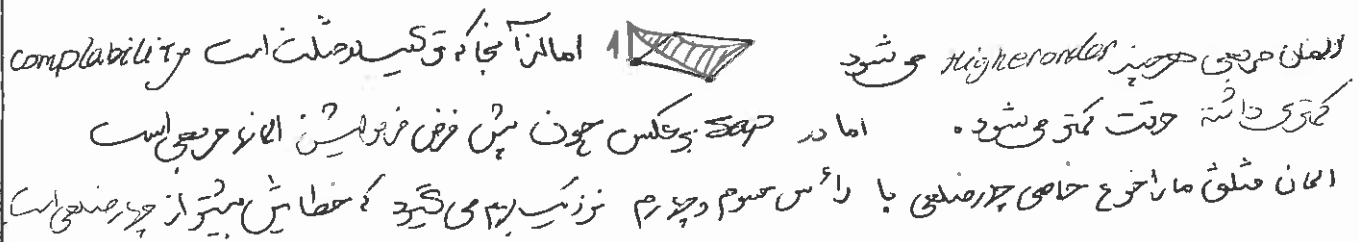 المان مربعی هرچیز Higherorder می‌شود اما از آنجا که ترکیب دو مثلث است complability
کمتری داشته دقت کمتر می‌شود. اما در sap برعکس چون پیش فرض فرمولیشن المانها مربعی است
المان مثلثی ما را نوع خاصی چهارضلعی با رأس سوم و چهارم نزدیک بهم می‌گیرد که خطایش بیشتر از چهارضلعی است